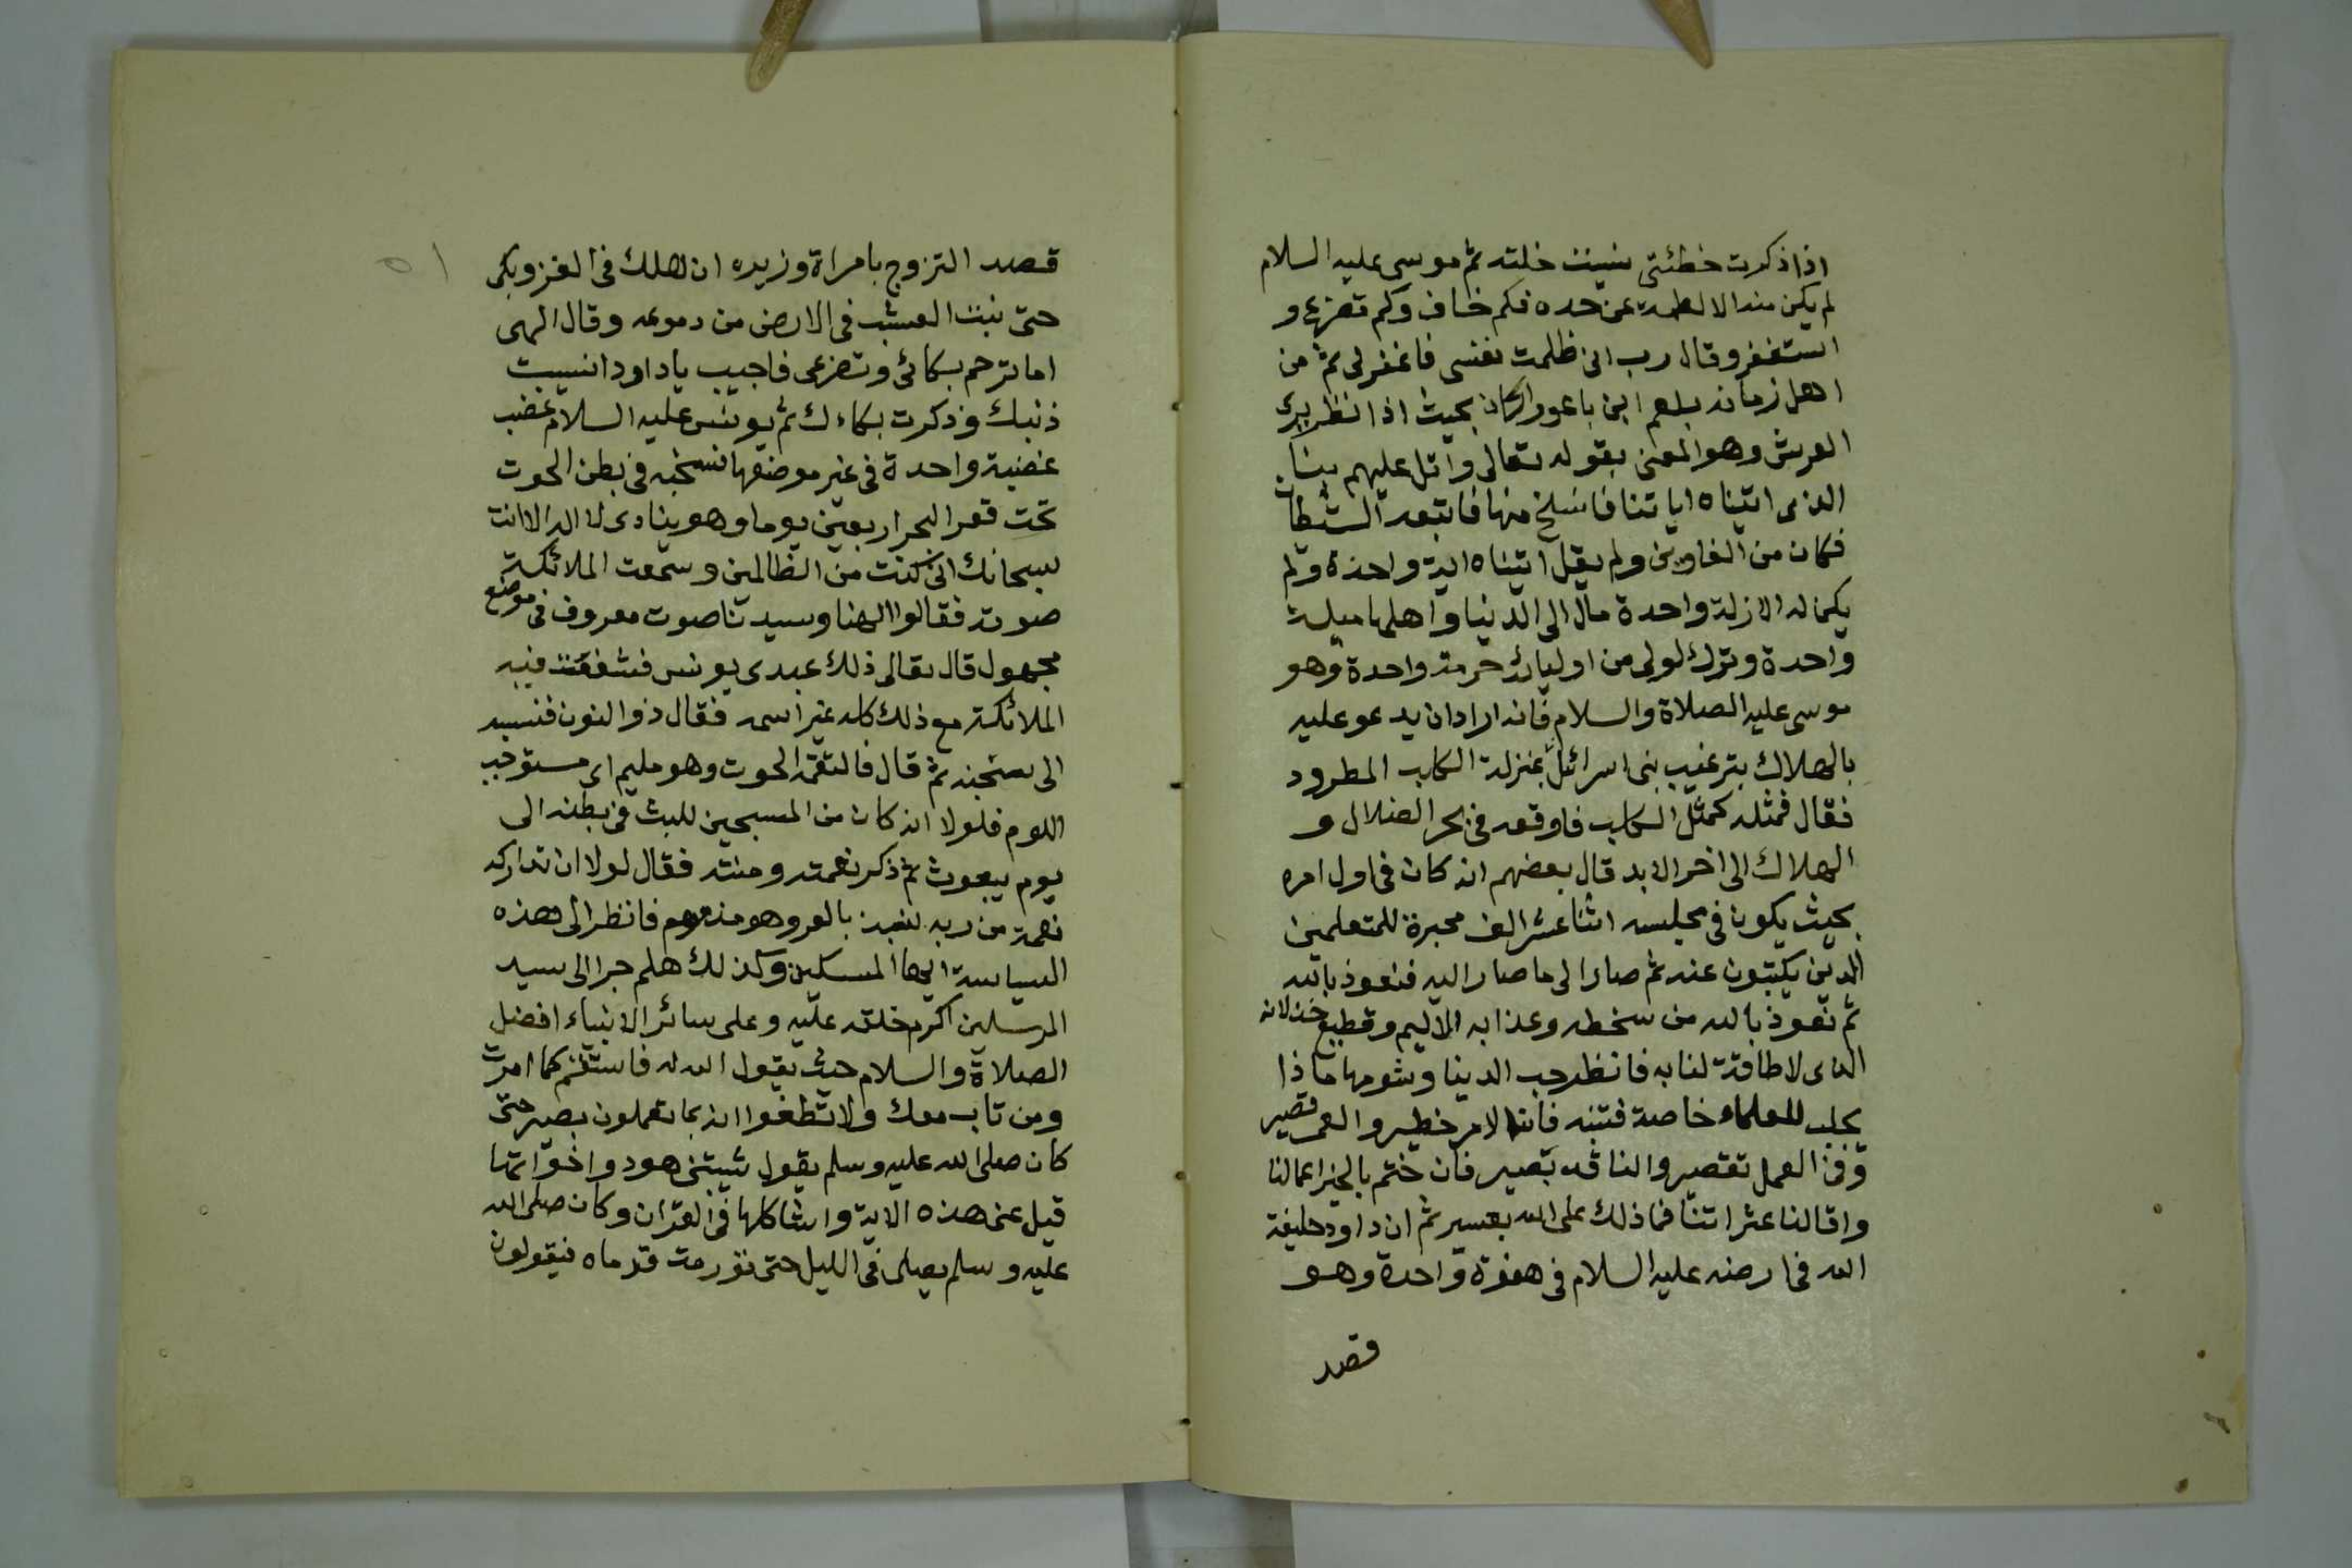 اذا ذكرت خطئتى نسيت خلته ثم موسى عليه السلام
لم يكن منه الا لطمة عن حده فكم خاف وكم تضرع و
استغفر وقال رب انى ظلمت نفسى فاغفر لى ثم من
اهل زمانه بلعم ابن باعورا كان بحيث اذا نظر يرى
العرش وهو المعنى بقوله تعالى واتل عليهم نبأ
الذى اتيناه اياتنا فانسلخ منها فاتبعه الشيطان
فكان من الغاوين ولم يقل اتيناه اية واحدة ولم
يكن له الا زلة واحدة مال الى الدنيا واهلها ميلة
واحدة وترك لولى من اوليائه حرمة واحدة وهو
موسى عليه الصلاة والسلام فانه اراد ان يدعو عليه
بالهلاك بترغيب بنى اسرائل بمنزلة الكلب المطرود
فقال فمثله كمثل الكلب فاوقعه فى بحر الضلال و
الهلاك الى اخر الابد قال بعضهم انه كان فى اول امره
بحيث يكون فى مجلسه اثنا عشر الف محبرة للمتعلمين
الذين يكتبون عنه ثم صار الى ما صار اليه فنعوذ بالله
ثم نعوذ بالله من سخطه وعذابه الاليم وقطيع خذلانه
الذى لا طاقة لنا به فانظر حب الدنيا وشومها ماذا
يجلب للعلماء خاصة فتنبه فان الامر خطير والعمر قصير
وفى العمل تقصير والناقد بصير فان ختم بالخير اعمالنا
واقالنا عثراتنا فما ذلك على الله بعسير ثم ان داود خليفة
الله فى ارضه عليه السلام فى هفوة واحدة وهو
قصد
٥١
قصد التزوج بامراة وزيره ان هلك فى الغزو بكى
حتى نبت العشب فى الارض من دموعه وقال الهى
اما ترحم بكائى وتضرعى فاجيب يا داود انسيت
ذنبك وذكرت بكاءك ثم يونس عليه السلام غضب
غضبة واحدة فى غير موضعها فسجنه فى بطن الحوت
تحت قعر البحر اربعين يوما وهو ينادى لا اله الا انت
سبحانك انى كنت من الظالمين وسمعت الملائكة
صوته فقالوا الهنا وسيدنا صوت معروف فى موضع
مجهول قال تعالى ذلك عبدى يونس فشفعت فيه
الملائكة مع ذلك كله غير اسمه فقال ذو النون فنسبه
الى سجنه ثم قال فالتقمه الحوت وهو مليم اى مستوجب
اللوم فلولا انه كان من المسبحين للبث فى بطنه الى
يوم يبعوث ثم ذكر نعمته ومنته فقال لولا ان تداركه
نعمة من ربه لنبذ بالعرو هو مذموم فانظر الى هذه
السياسة ايها المسكين وكذلك هلم جرا الى سيد
المرسلين اكرم خلقه عليه وعلى سائر الانبياء افضل
الصلاة والسلام حيث يقول الله له فاستقم كما امرت
ومن تاب معك ولا تطغوا انه بما تعملون بصير حتى
كان صلى الله عليه وسلم يقول شيبتنى هود واخواتها
قيل عنى هذه الاية واشاكلها فى القران وكان صلى الله
عليه وسلم يصلى فى الليل حتى تورمت قدماه فيقولون